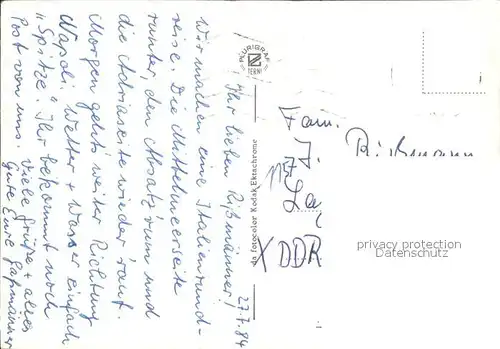 27.7.84
Ihr lieben Rißmänner!
Wir machen eine Italienrund-
reise. Die Mittelmeerseite
runter, den Absatz rum und
die Adriaseite wieder rauf.
Morgen geht's weiter Richtung
Napoli. Wetter + Wasser einfach
"Spitze". Ihr bekommt noch
Post von uns. Viele Grüße + alles
Gute Eure Gaßmänner
PLURIGRAF
TERNI
da fotocolor Kodak Ektachrome
Fam.
J. Rißmann
1157
La
X DDR
privacy protection
Datenschutz